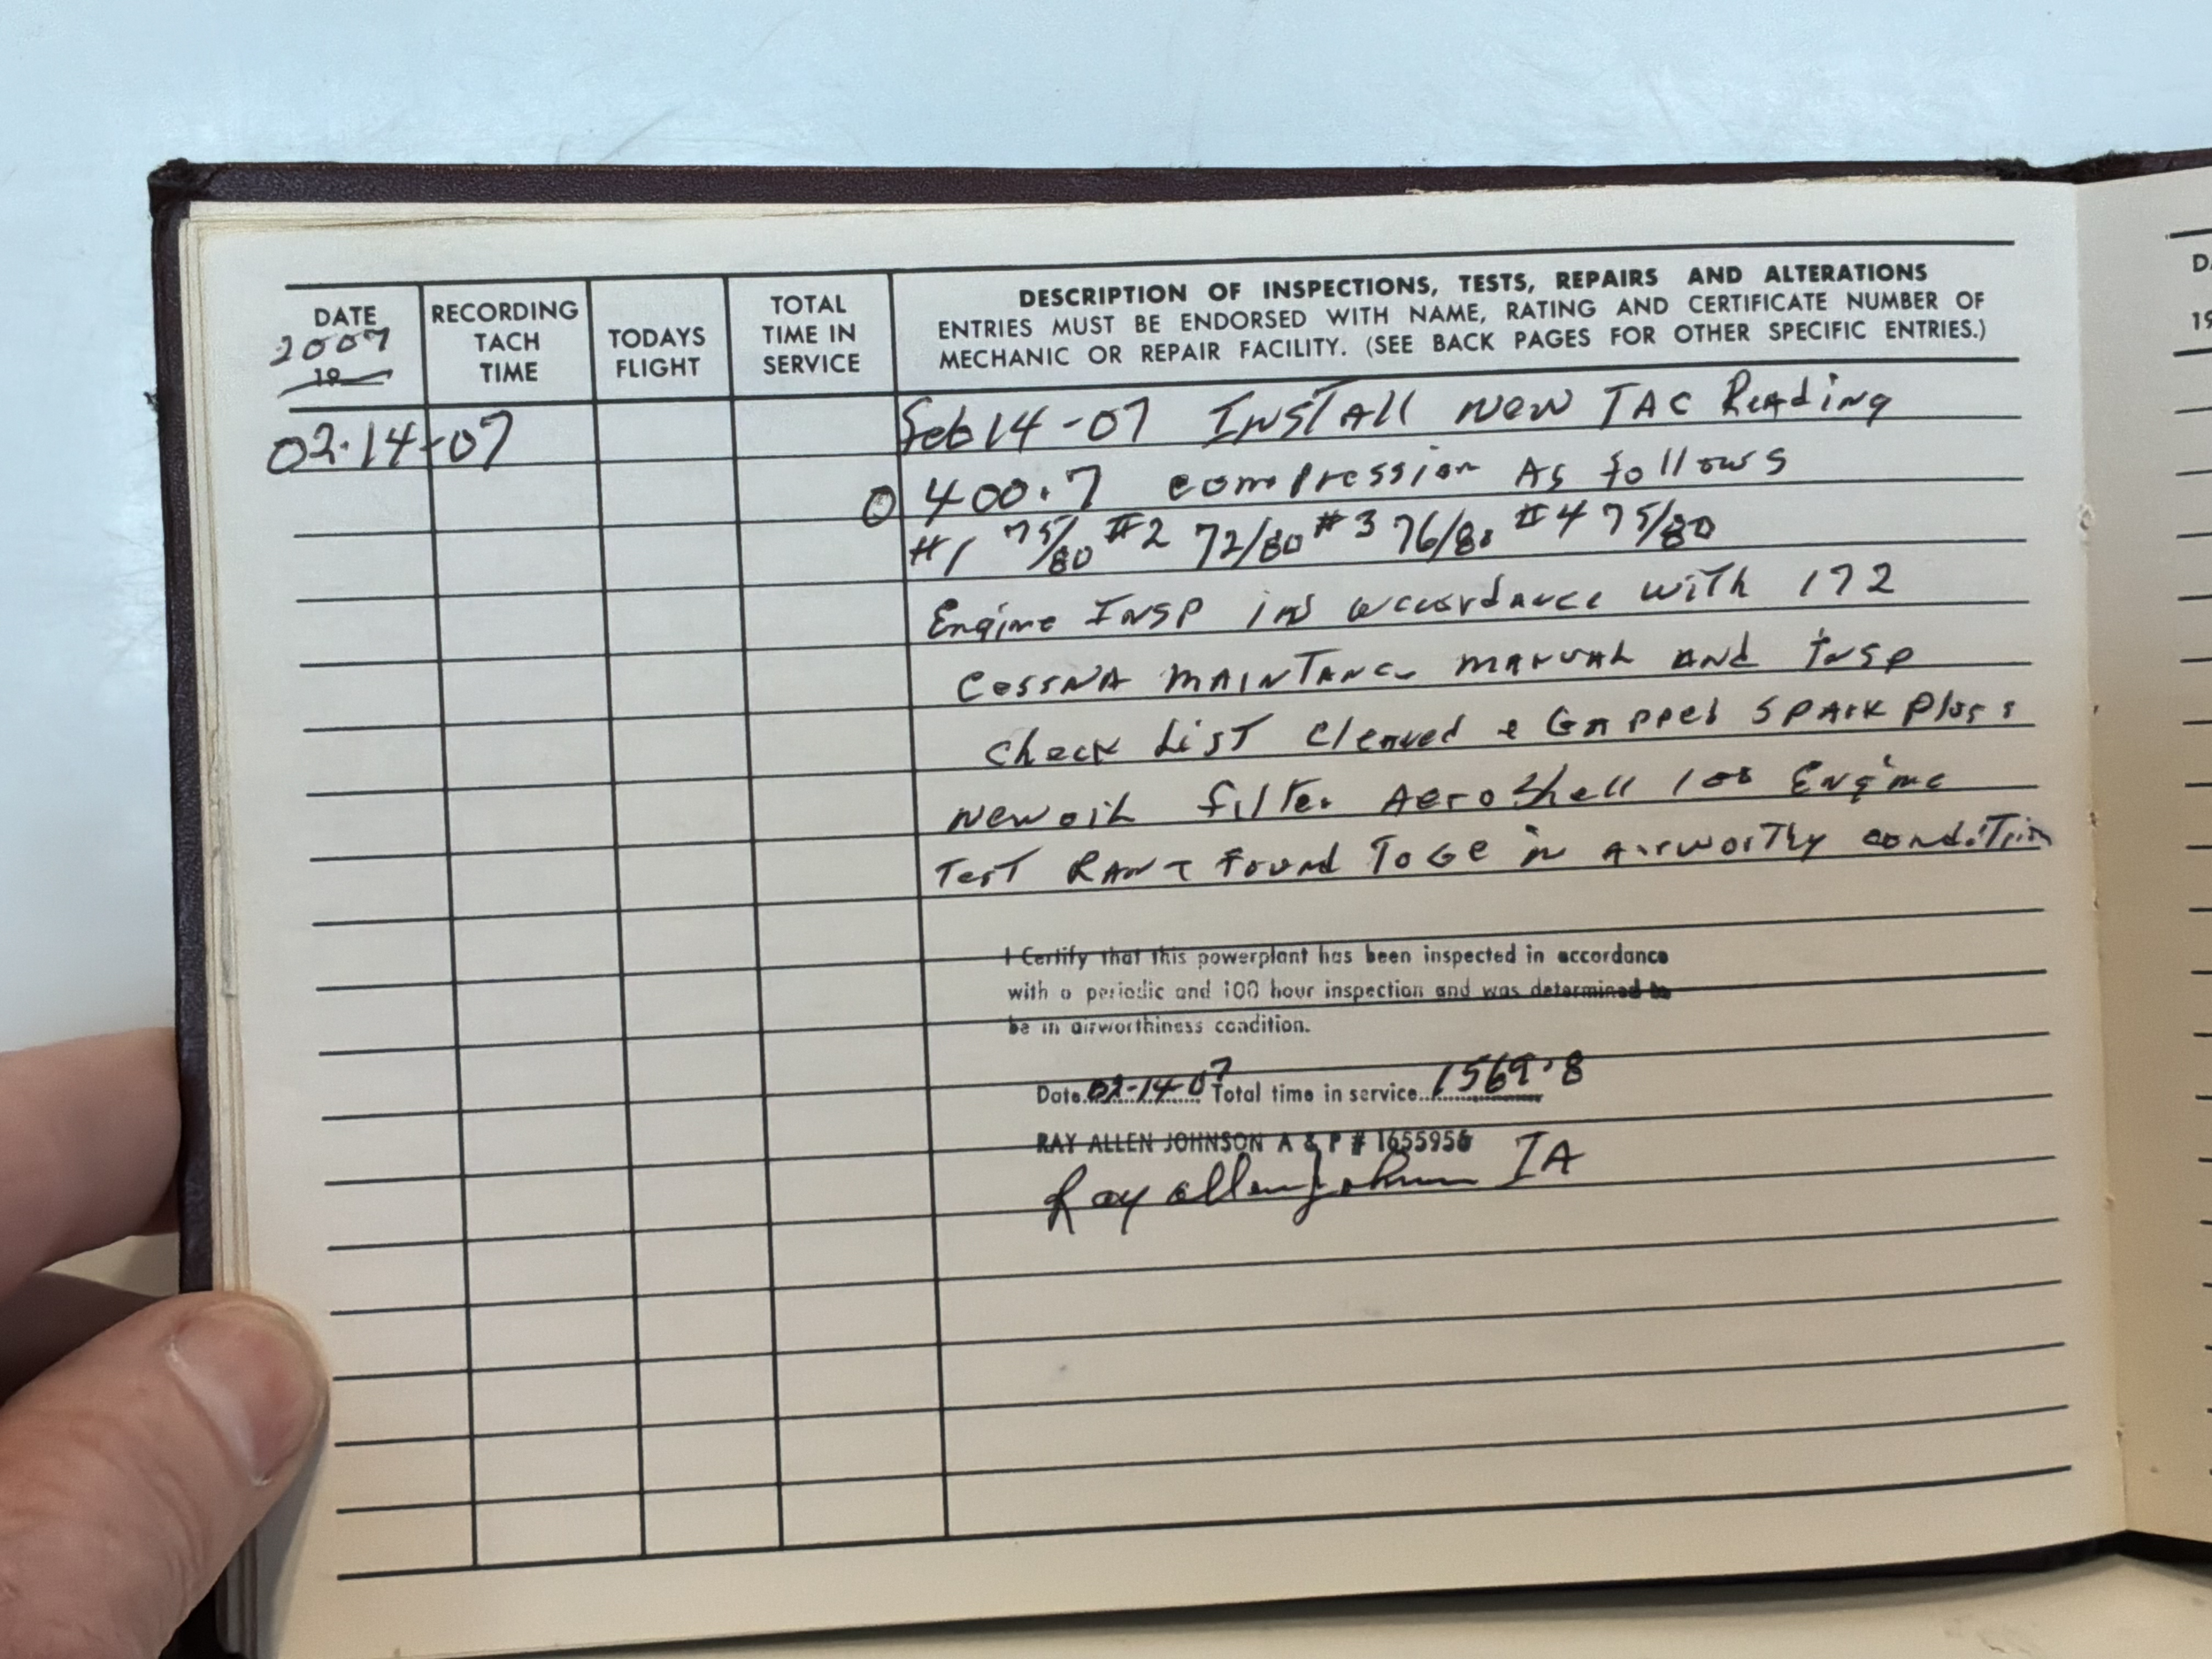 DATE
2007
19
RECORDING
TACH
TIME
TODAYS
FLIGHT
TOTAL
TIME IN
SERVICE
DESCRIPTION OF INSPECTIONS, TESTS, REPAIRS AND ALTERATIONS
ENTRIES MUST BE ENDORSED WITH NAME, RATING AND CERTIFICATE NUMBER OF
MECHANIC OR REPAIR FACILITY. (SEE BACK PAGES FOR OTHER SPECIFIC ENTRIES.)
02-14-07
Feb 14-07 INSTAll New TAC Reading
0 400.7 compression As follows
#1 75/80 #2 72/80 #3 76/80 #4 75/80
Engine INSP in accordance with 172
CessNA MAINTANCe MANUAL and INSP
Check List Cleaned & GApped SPArk Plugs
New oil filter AeroShell 100 Engine
TesT RAN & Found To Be in Airworthy condiTion
I Certify that this powerplant has been inspected in accordance
with a periodic and 100 hour inspection and was determined to
be in airworthiness condition.
Date 02-14-07 Total time in service 1569.8
RAY ALLEN JOHNSON A & P # 1655956
Ray Allen Johnson IA
D
19